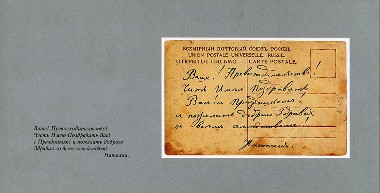 Ваше! Превосходительство!
Честь Имею Поздравить Вас!
с Праздником! и пожелать доброго
Здравія со всем семейством!
Наталия.
ВСЕМІРНЫЙ ПОЧТОВЫЙ СОЮЗЪ. РОССІЯ.
UNION POSTALE UNIVERSELLE. RUSSIE.
ОТКРЫТОЕ ПИСЬМО — CARTE POSTALE.
Ваше! Превосходительство!
Честь Имею Поздравить
Вас! съ Праздником!
и пожелать добраго Здравія
со всем семейством!
Наталия